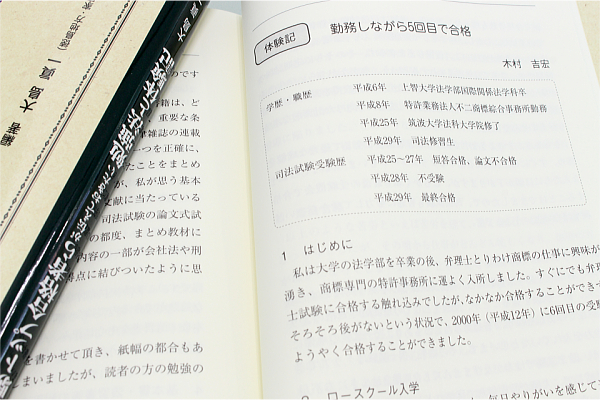 体験記
勤務しながら5回目で合格
木村 吉宏
学歴・職歴 平成6年 上智大学法学部国際関係法学科卒
平成8年 特許業務法人不二商標綜合事務所勤務
平成25年 筑波大学法科大学院修了
平成29年 司法修習生
司法試験受験歴 平成25~27年 短答合格、論文不合格
平成28年 不受験
平成29年 最終合格
1 はじめに
私は大学の法学部を卒業の後、弁理士とりわけ商標の仕事に興味が
湧き、商標専門の特許事務所に運よく入所しました。すぐにでも弁理
士試験に合格する触れ込みでしたが、なかなか合格することができず
そろそろ後がないという状況で、2000年（平成12年）に6回目の受験
ようやく合格することができました。
ロースクール入学
毎日やりがいを感じて
のです
籍は、ど
重要な条
雑誌の連載
一つを正確に、
たことをまとめ
が、私が思う基本
文献に当たっている
司法試験の論文式試
の都度、まとめ教材に
内容の一部が会社法や刑
得点に結びついたように思
を書かせて頂き、紙幅の都合もあ
まいましたが、読者の方の勉強の
編著 大島眞一
大島眞一
合格者
勉強法と体験記